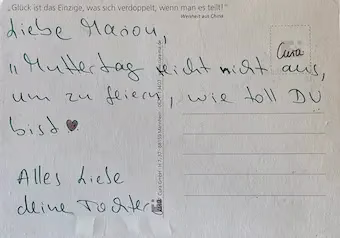 „Glück ist das Einzige, was sich verdoppelt, wenn man es teilt!“
Weisheit aus China
Liebe Marion,
„Muttertag reicht nicht aus,
um zu feiern, wie toll DU
bist ♥
Alles Liebe
deine Tochter
Cura